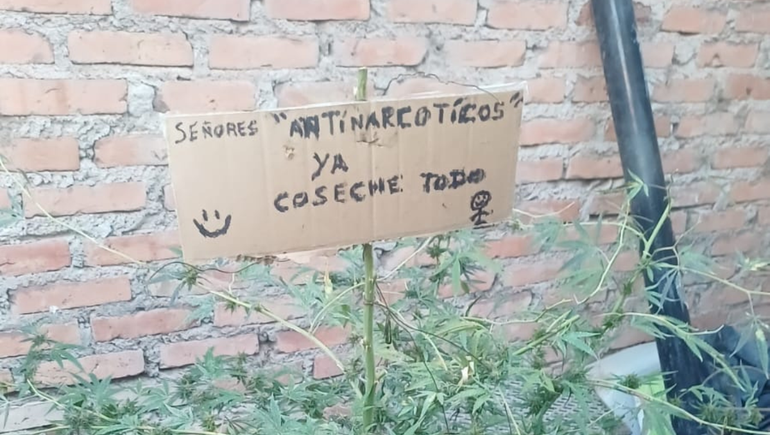 SEÑORES "ANTINARCOTICOS"
YA
COSECHE TODO